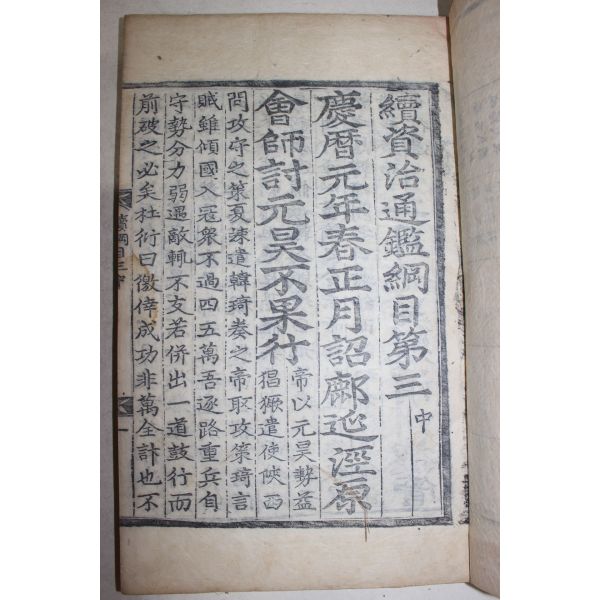 續資治通鑑綱目第三 中
慶曆元年春正月詔鄜延涇原
會師討元昊不果行
帝以元昊勢益
猖獗遣使陜西
問攻守之策夏竦遣韓琦奏之帝取攻策琦言
賊雖傾國入寇衆不過四五萬吾逐路重兵自
守勢分力弱遇敵輒不支若併出一道鼓行而
前破之必矣杜衍曰儌倖成功非萬全計也不
續綱目三中
一